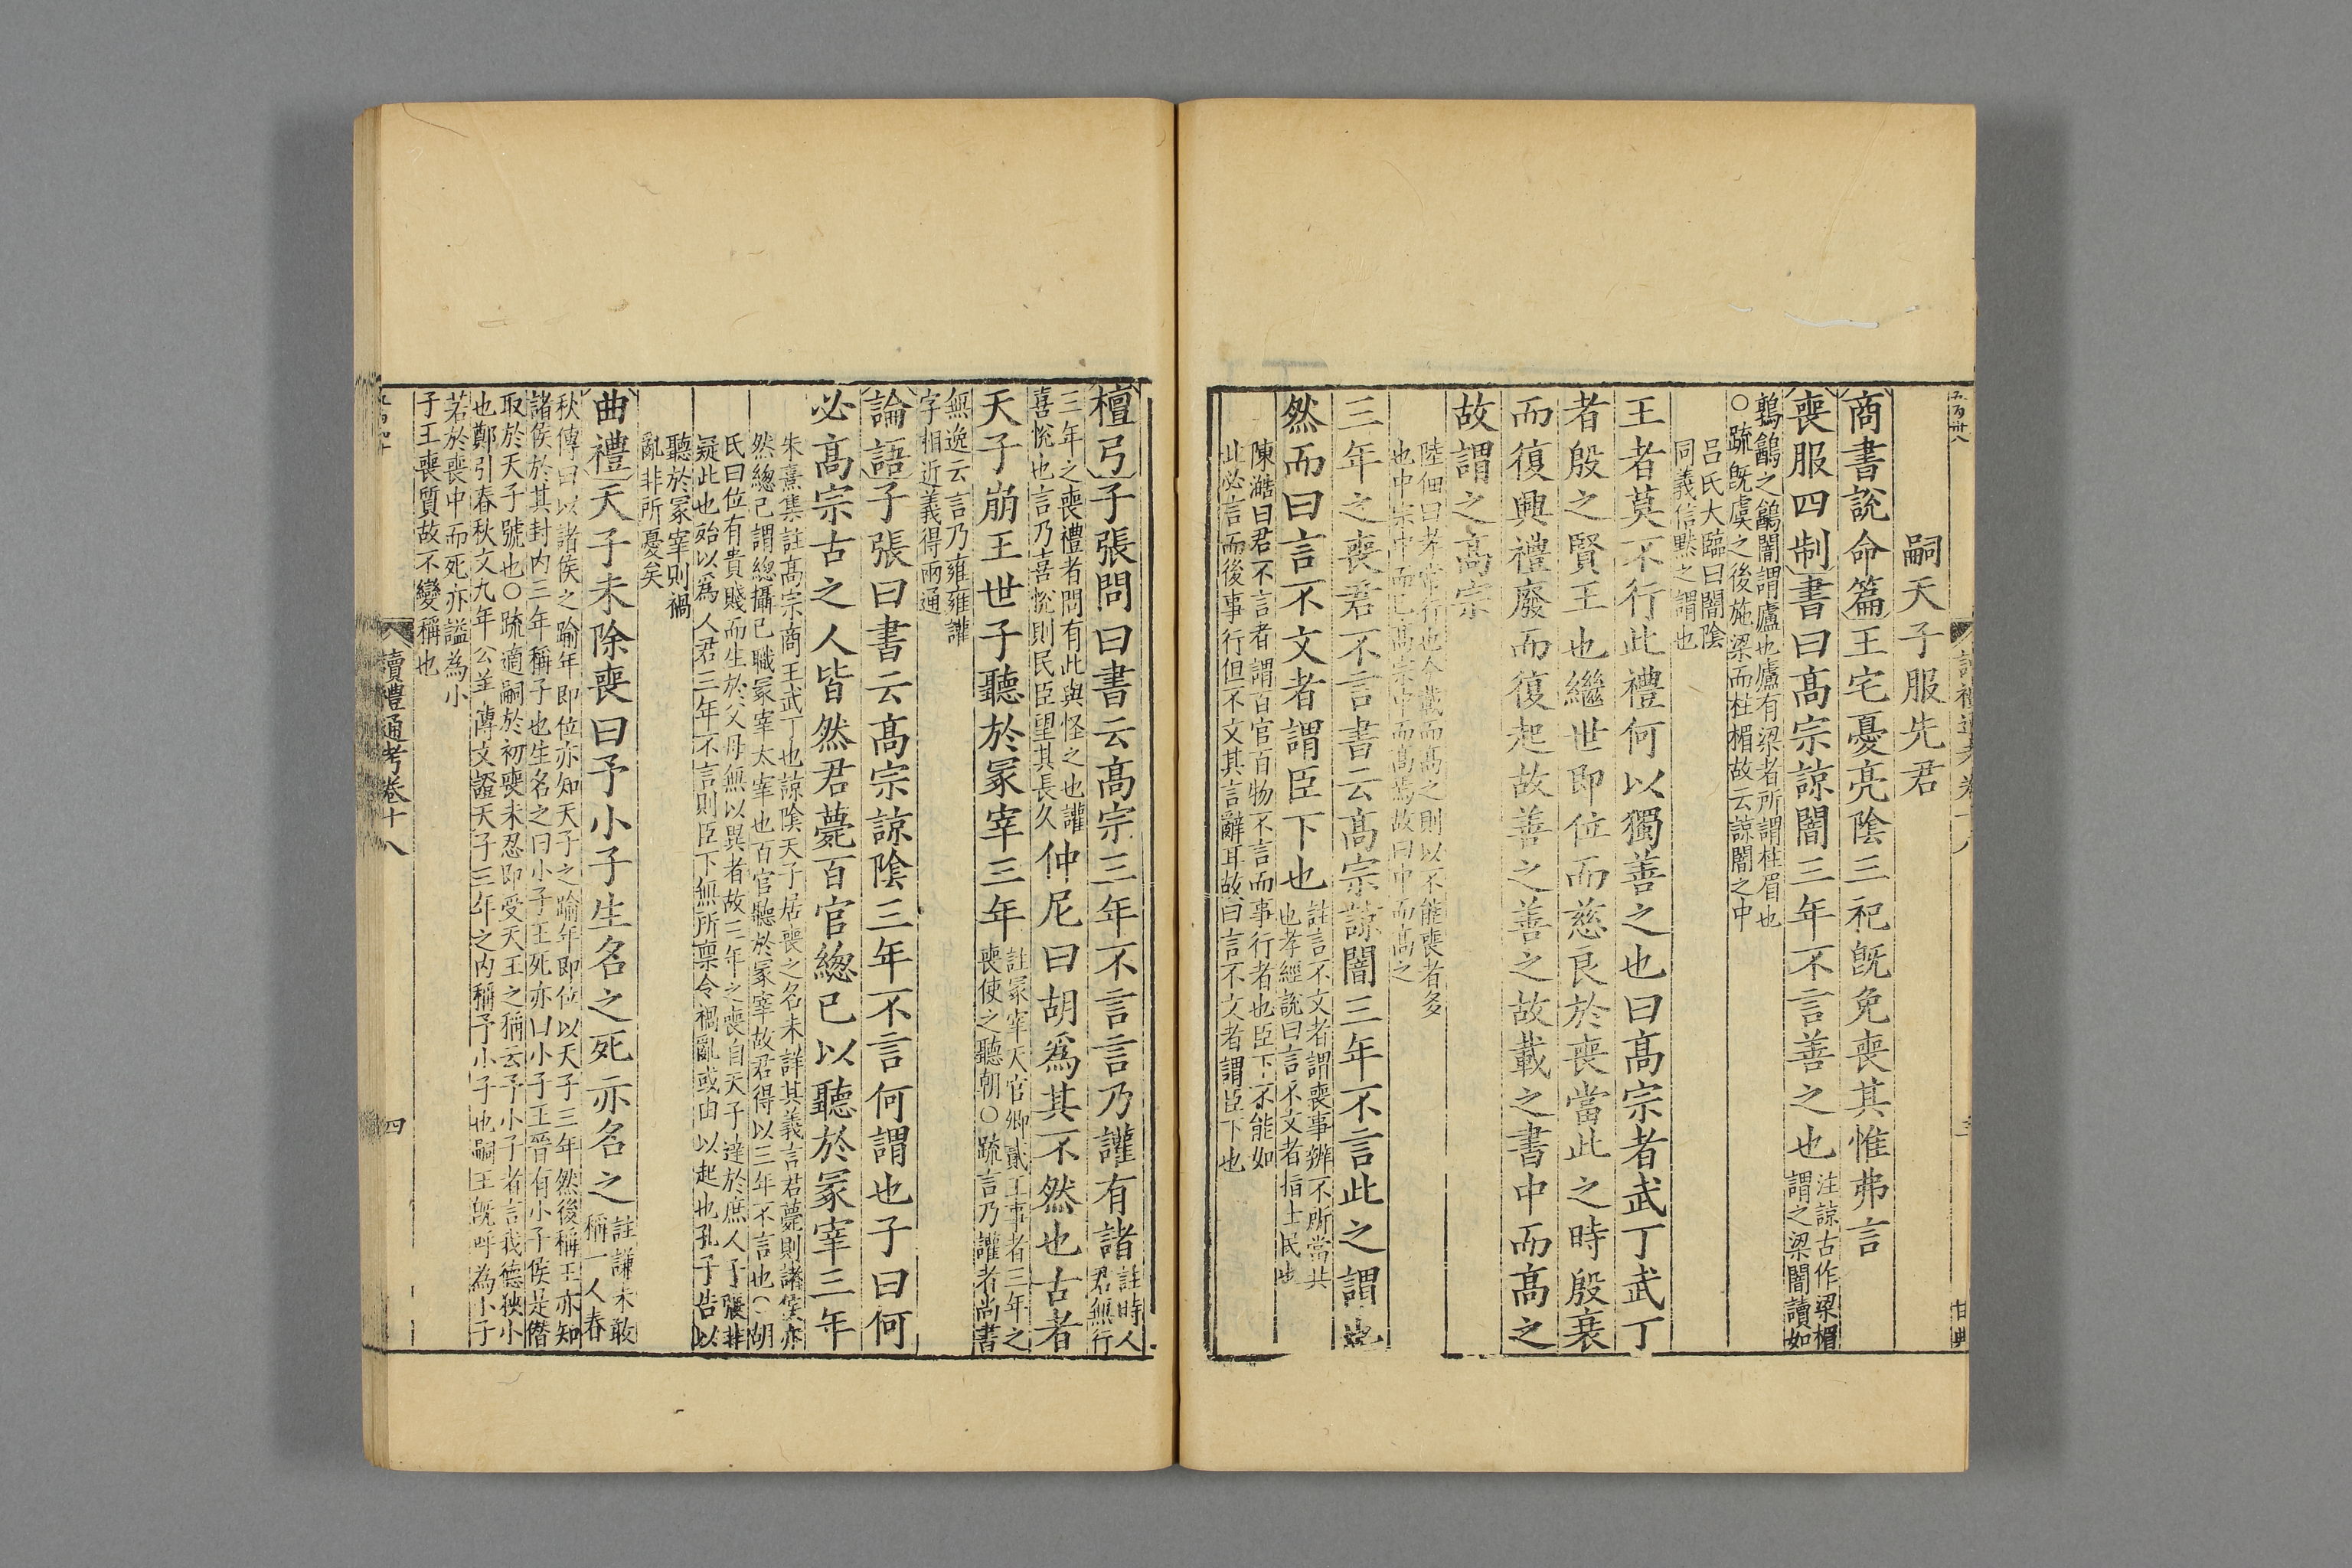 嗣天子服先君
商書說命篇王宅憂亮陰三祀旣免喪其惟弗言
喪服四制書曰高宗諒闇三年不言善之也
注諒古作梁楣
謂之梁闇讀如
鶉䳺之䳺闇謂廬也廬有梁者所謂柱眉也
○疏旣虞之後施梁而柱楣故云諒闇之中
呂氏大臨曰闇陰
同義信默之謂也
王者莫不行此禮何以獨善之也曰高宗者武丁武丁
者殷之賢王也繼世即位而慈良於喪當此之時殷衰
而復興禮廢而復起故善之善之故載之書中而高之
故謂之高宗
陸佃曰孝常行也今載而高之則以不能喪者多
也中宗中而已高宗中而高焉故曰中而高之
三年之喪君不言書云高宗諒闇三年不言此之謂也
然而曰言不文者謂臣下也
註言不文者謂喪事辨不所當共
也孝經說曰言不文者指士民也
陳澔曰君不言者謂百官百物不言而事行者也臣下不能如
此必言而後事行但不文其言辭耳故曰言不文者謂臣下也
檀弓子張問曰書云高宗三年不言言乃讙有諸
註時人
君無行
三年之喪禮者問有此與怪之也讙
喜悅也言乃喜悅則民臣望其長久
仲尼曰胡爲其不然也古者
天子崩王世子聽於冢宰三年
註冢宰天官卿貳王事者三年之
喪使之聽朝○疏言乃讙者尚書
無逸云言乃雍雍讙
字相近義得兩通
論語子張曰書云高宗諒陰三年不言何謂也子曰何
必高宗古之人皆然君薨百官總已以聽於冢宰三年
朱熹集註高宗商王武丁也諒陰天子居喪之名未詳其義言君薨則諸侯亦
然總己謂總攝已職冢宰太宰也百官聽於冢宰故君得以三年不言也○胡
氏曰位有貴賤而生於父母無以異者故三年之喪自天子達於庶人子張非
疑此也殆以爲人君三年不言則臣下無所稟令禍亂或由以起也孔子告以
聽於冢宰則禍
亂非所憂矣
曲禮天子未除喪曰予小子生名之死亦名之
註謙未敢
稱一人春
秋傳曰以諸侯之踰年即位亦知天子之踰年即位以天子三年然後稱王亦知
諸侯於其封内三年稱子也生名之曰小子王死亦曰小子王晉有小子侯是僭
取於天子號也○疏適嗣於初喪未忍即受天王之稱云予小子者言我德狹小
也鄭引春秋文九年公羊傳文證天子三年之内稱予小子也嗣王旣呼為小子
若於喪中而死亦謚為小
子王喪質故不變稱也
讀禮通考卷十八
四